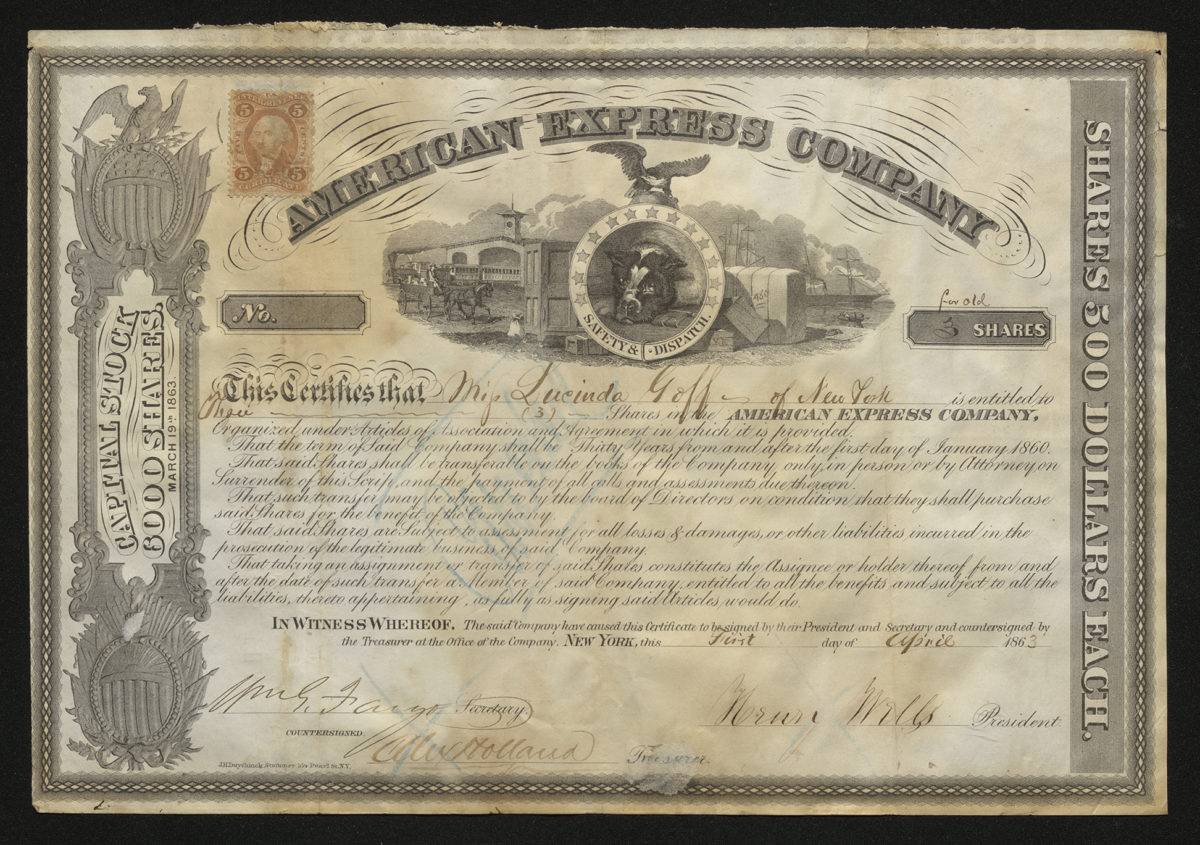 AMERICAN EXPRESS COMPANY
5 5
5 5
CERTIFICATE
SAFETY & DISPATCH.
No.
for old
3 SHARES
CAPITAL STOCK
6000 SHARES.
MARCH 19TH 1863.
SHARES 500 DOLLARS EACH.
This Certifies that Miss Lucinda Goff of New York is entitled to
Three (3) Shares in the AMERICAN EXPRESS COMPANY,
Organized under Articles of Association and Agreement in which it is provided,
That the term of Said Company shall be Thirty Years from and after the first day of January 1860.
That said Shares shall be transferable on the books of the Company, only in person or by Attorney on
Surrender of this Scrip and the payment of all calls and assessments due thereon.
That such transfer may be objected to by the board of Directors on condition that they shall purchase
said Shares for the benefit of the Company.
That said Shares are Subject to assessment for all losses & damages, or other liabilities incurred in the
prosecution of the legitimate business of said Company.
That taking an assignment or transfer of said Shares constitutes the Assignee or holder thereof from and
after the date of such transfer a Member of said Company, entitled to all the benefits and subject to all the
liabilities, thereto appertaining, as fully as signing said Articles, would do.
IN WITNESS WHEREOF, The said Company have caused this Certificate to be signed by their President and Secretary and countersigned by
the Treasurer at the Office of the Company, NEW YORK, this First day of April 1863
Wm G. Fargo Secretary. Henry Wells President
COUNTERSIGNED
Alex Holland Treasurer.
J.H. Duyckinck, Stationer 164 Pearl St. N.Y.